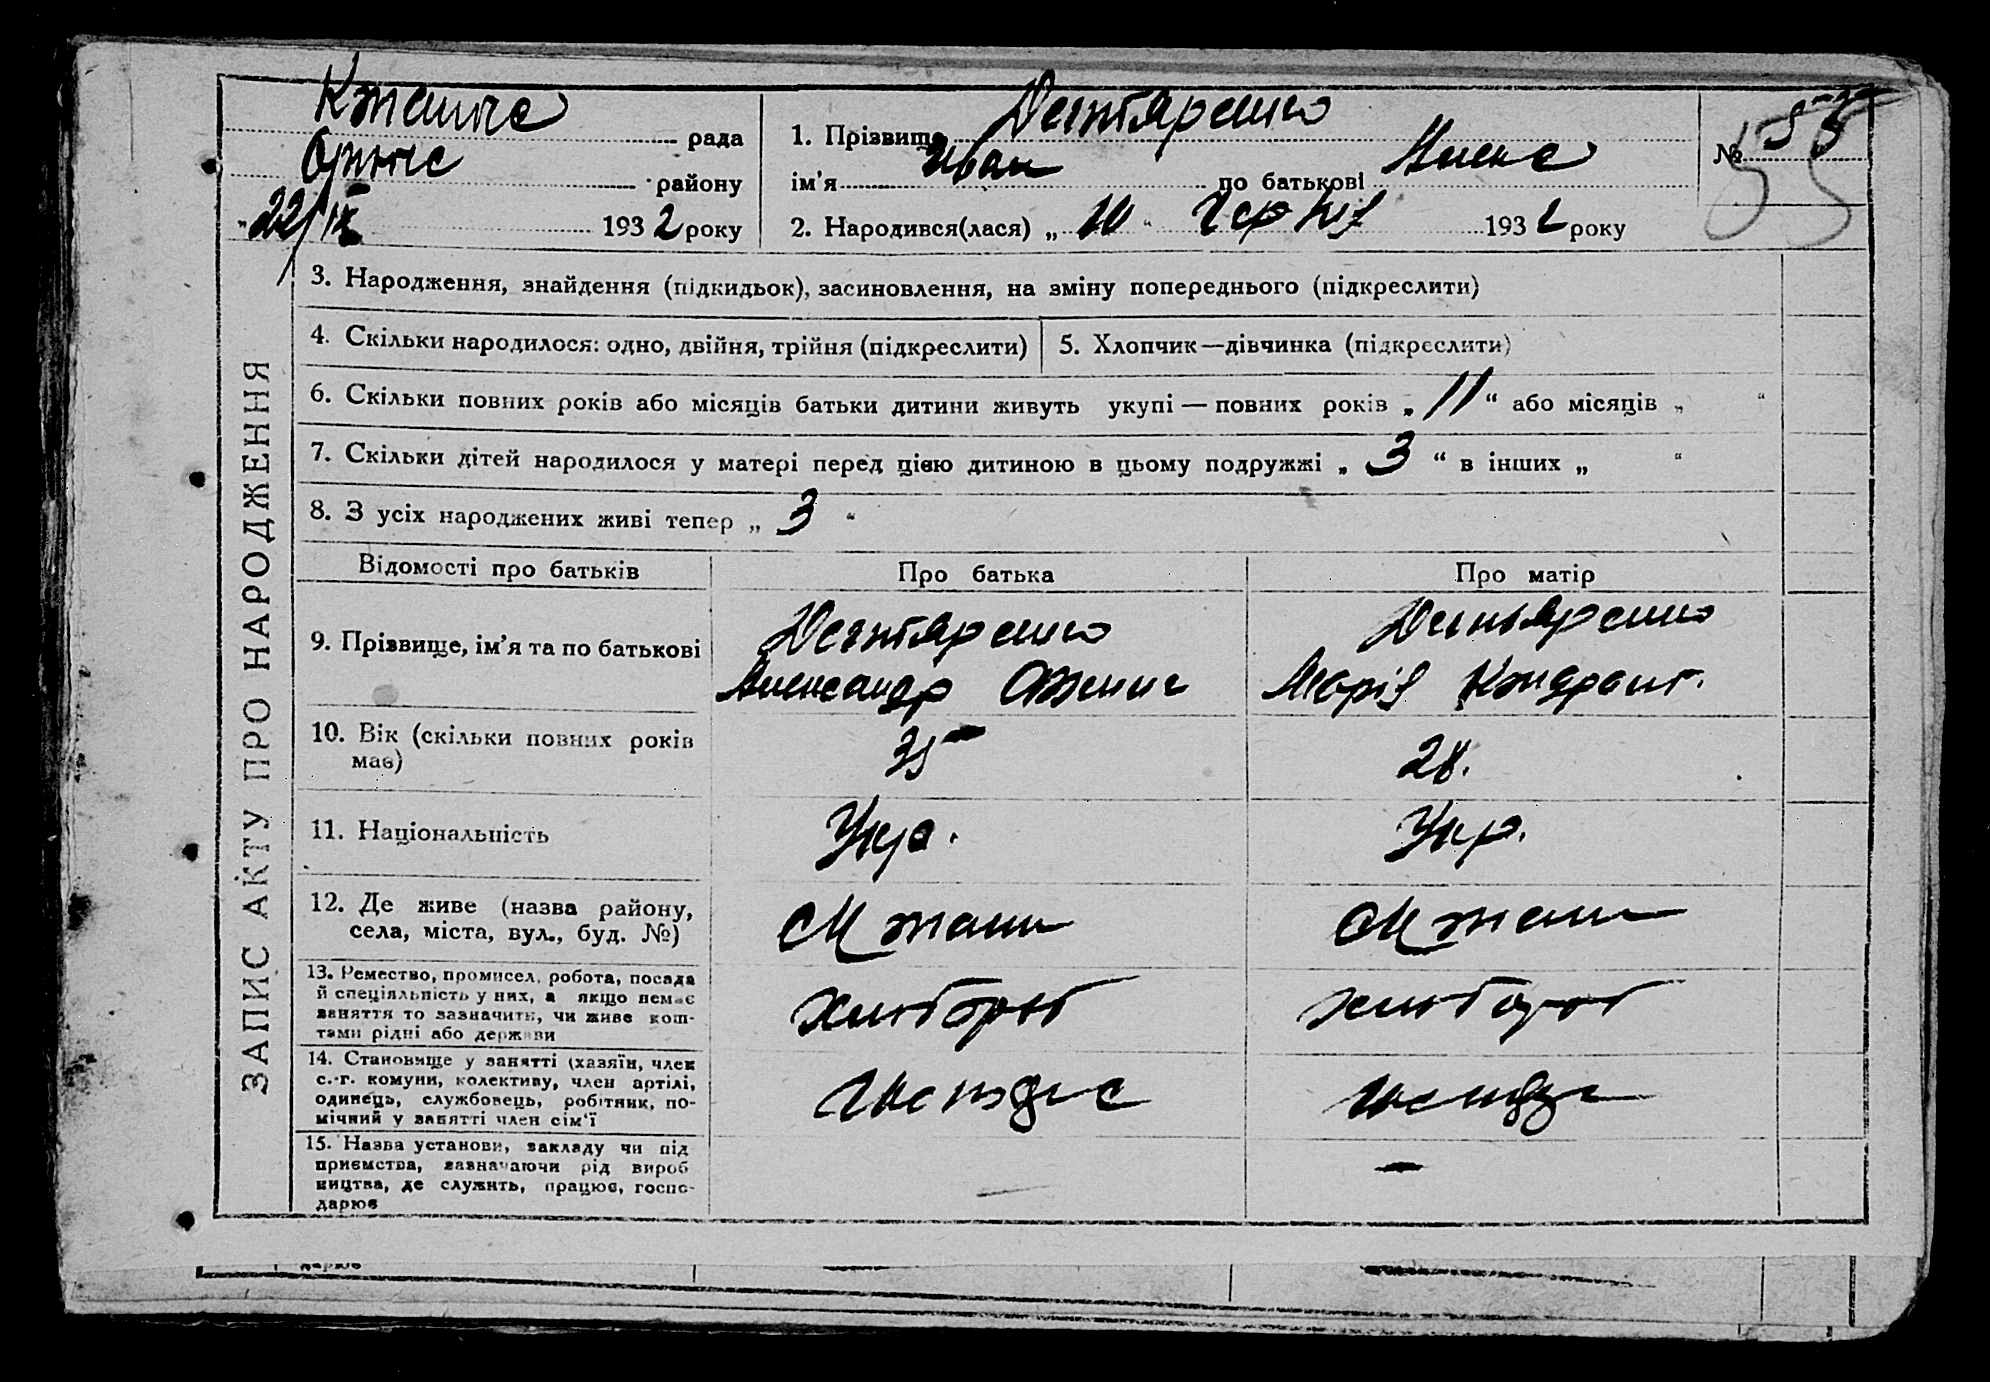 рада
району
22/IX 1932 року
1. Прізвище Дегтяренко
ім'я Иван по батькові Алекс
2. Народився(лася) „ 10 “ 1932 року
№ 55
ЗАПИС АКТУ ПРО НАРОДЖЕННЯ
3. Народження, знайдення (підкидьок), засиновлення, на зміну попереднього (підкреслити)
4. Скільки народилося: одно, двійня, трійня (підкреслити)
5. Хлопчик—дівчинка (підкреслити)
6. Скільки повних років або місяців батьки дитини живуть укупі — повних років „ 11 “ або місяців „ “
7. Скільки дітей народилося у матері перед цією дитиною в цьому подружжі „ 3 “ в інших „ “
8. З усіх народжених живі тепер „ 3 “
Відомості про батьків
Про батька
Про матір
9. Прізвище, ім'я та по батькові
Дегтяренко
Александр
Дегтяренко
Марія Кондрат.
10. Вік (скільки повних років
має)
35
28.
11. Національність
Укр.
Укр.
12. Де живе (назва району,
села, міста, вул., буд. №)
13. Ремество, промисел, робота, посада
й спеціяльність у них, а якщо немає
заняття то зазначити, чи живе кош-
тами рідні або держави
хлібороб
хлібороб
14. Становище у занятті (хазяїн, член
с.-г. комуни, колективу, член артілі,
одинець, службовець, робітник, по-
мічний у занятті член сім'ї
15. Назва установи, закладу чи під
приємства, зазначаючи рід вироб
ництва, де служить, працює, госпо-
дарює
—
—
дарює